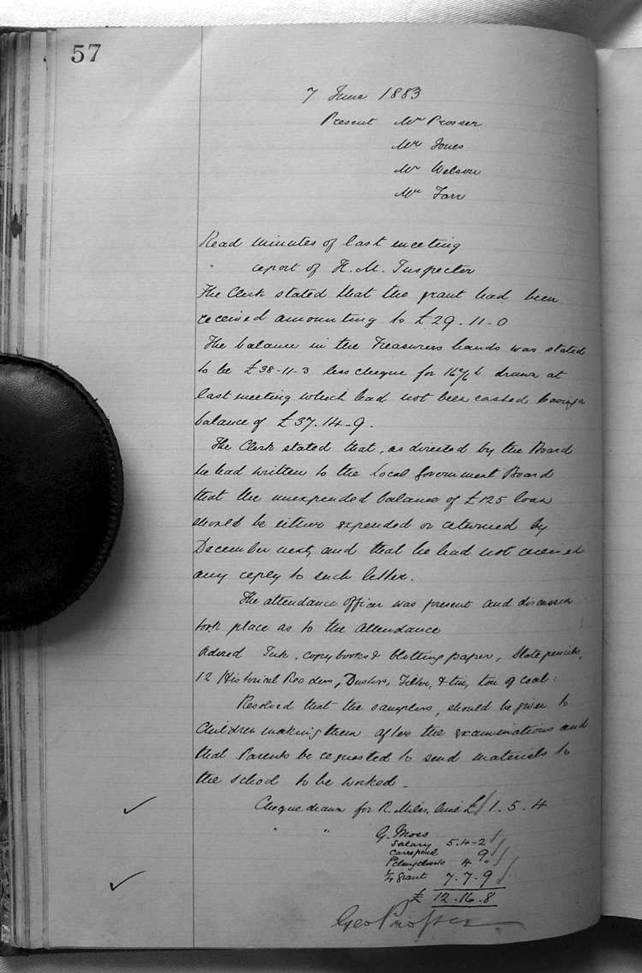 57
7 June 1883
Present Mr Prosser
Mr Jones
Mr Welson
Mr Farr
Read minutes of last meeting
" report of H. M. Inspector
The Clerk stated that the grant had been
received amounting to £29.11-0
The balance in the Treasurers hands was stated
to be £38-11-3 less cheque for 16/6 drawn at
last meeting which had not been cashed leaving a
balance of £37.14-9.
The Clerk stated that, as directed by the Board
he had written to the Local Government Board
that the unexpended balance of £125 loan
should be either expended or returned by
December next, and that he had not received
any reply to such letter.
The attendance officer was present and discussion
took place as to the attendance
Ordered Ink, copybooks & blotting paper, Slate pencils,
12 Historical Readers, Dusters, & ton of coal.
Resolved that the samplers, should be given to
Children making them after the examinations and
that Parents be requested to send materials to
the school to be worked.
Cheque drawn for R. Miles, £ 1.5.4
" " G. Moss
Salary 5.4-2
9
4
1/4 grant 7.7.9
£ 12.16.8
Geo Prosser